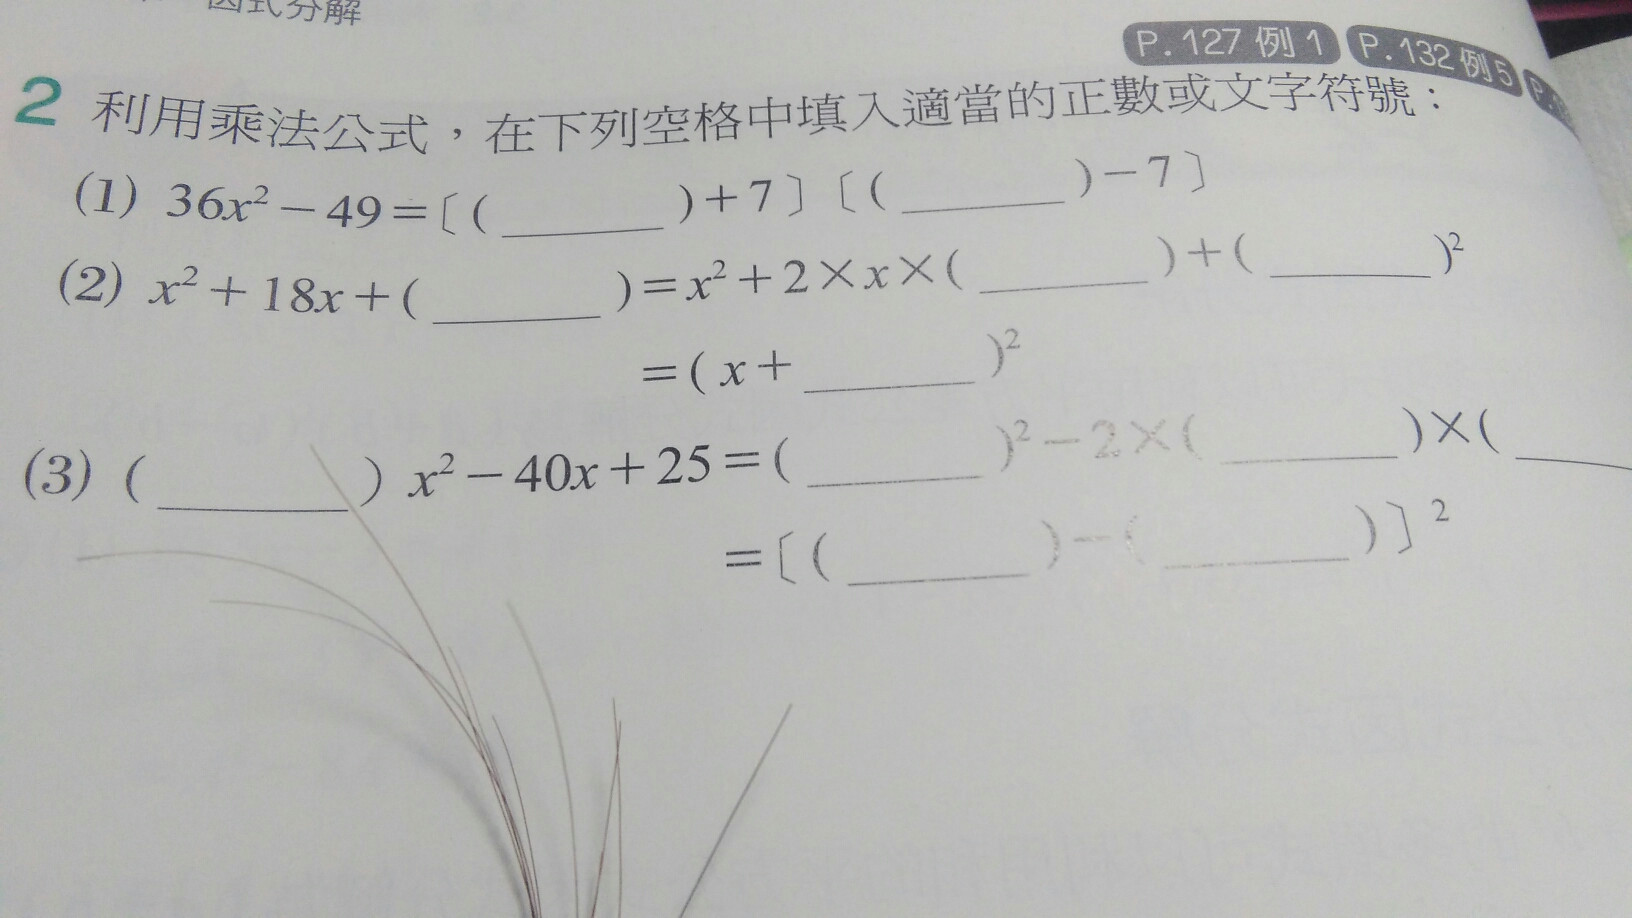 因式分解
P.127 例 1 P.132 例 5 P.
2 利用乘法公式，在下列空格中填入適當的正數或文字符號：
(1) 36x²－49＝〔(______)＋7〕〔(______)－7〕
(2) x²＋18x＋(______)＝x²＋2×x×(______)＋(______)²
＝(x＋______)²
(3) (______) x²－40x＋25＝(______)²－2×(______)×(______
＝〔(______)－(______)〕²